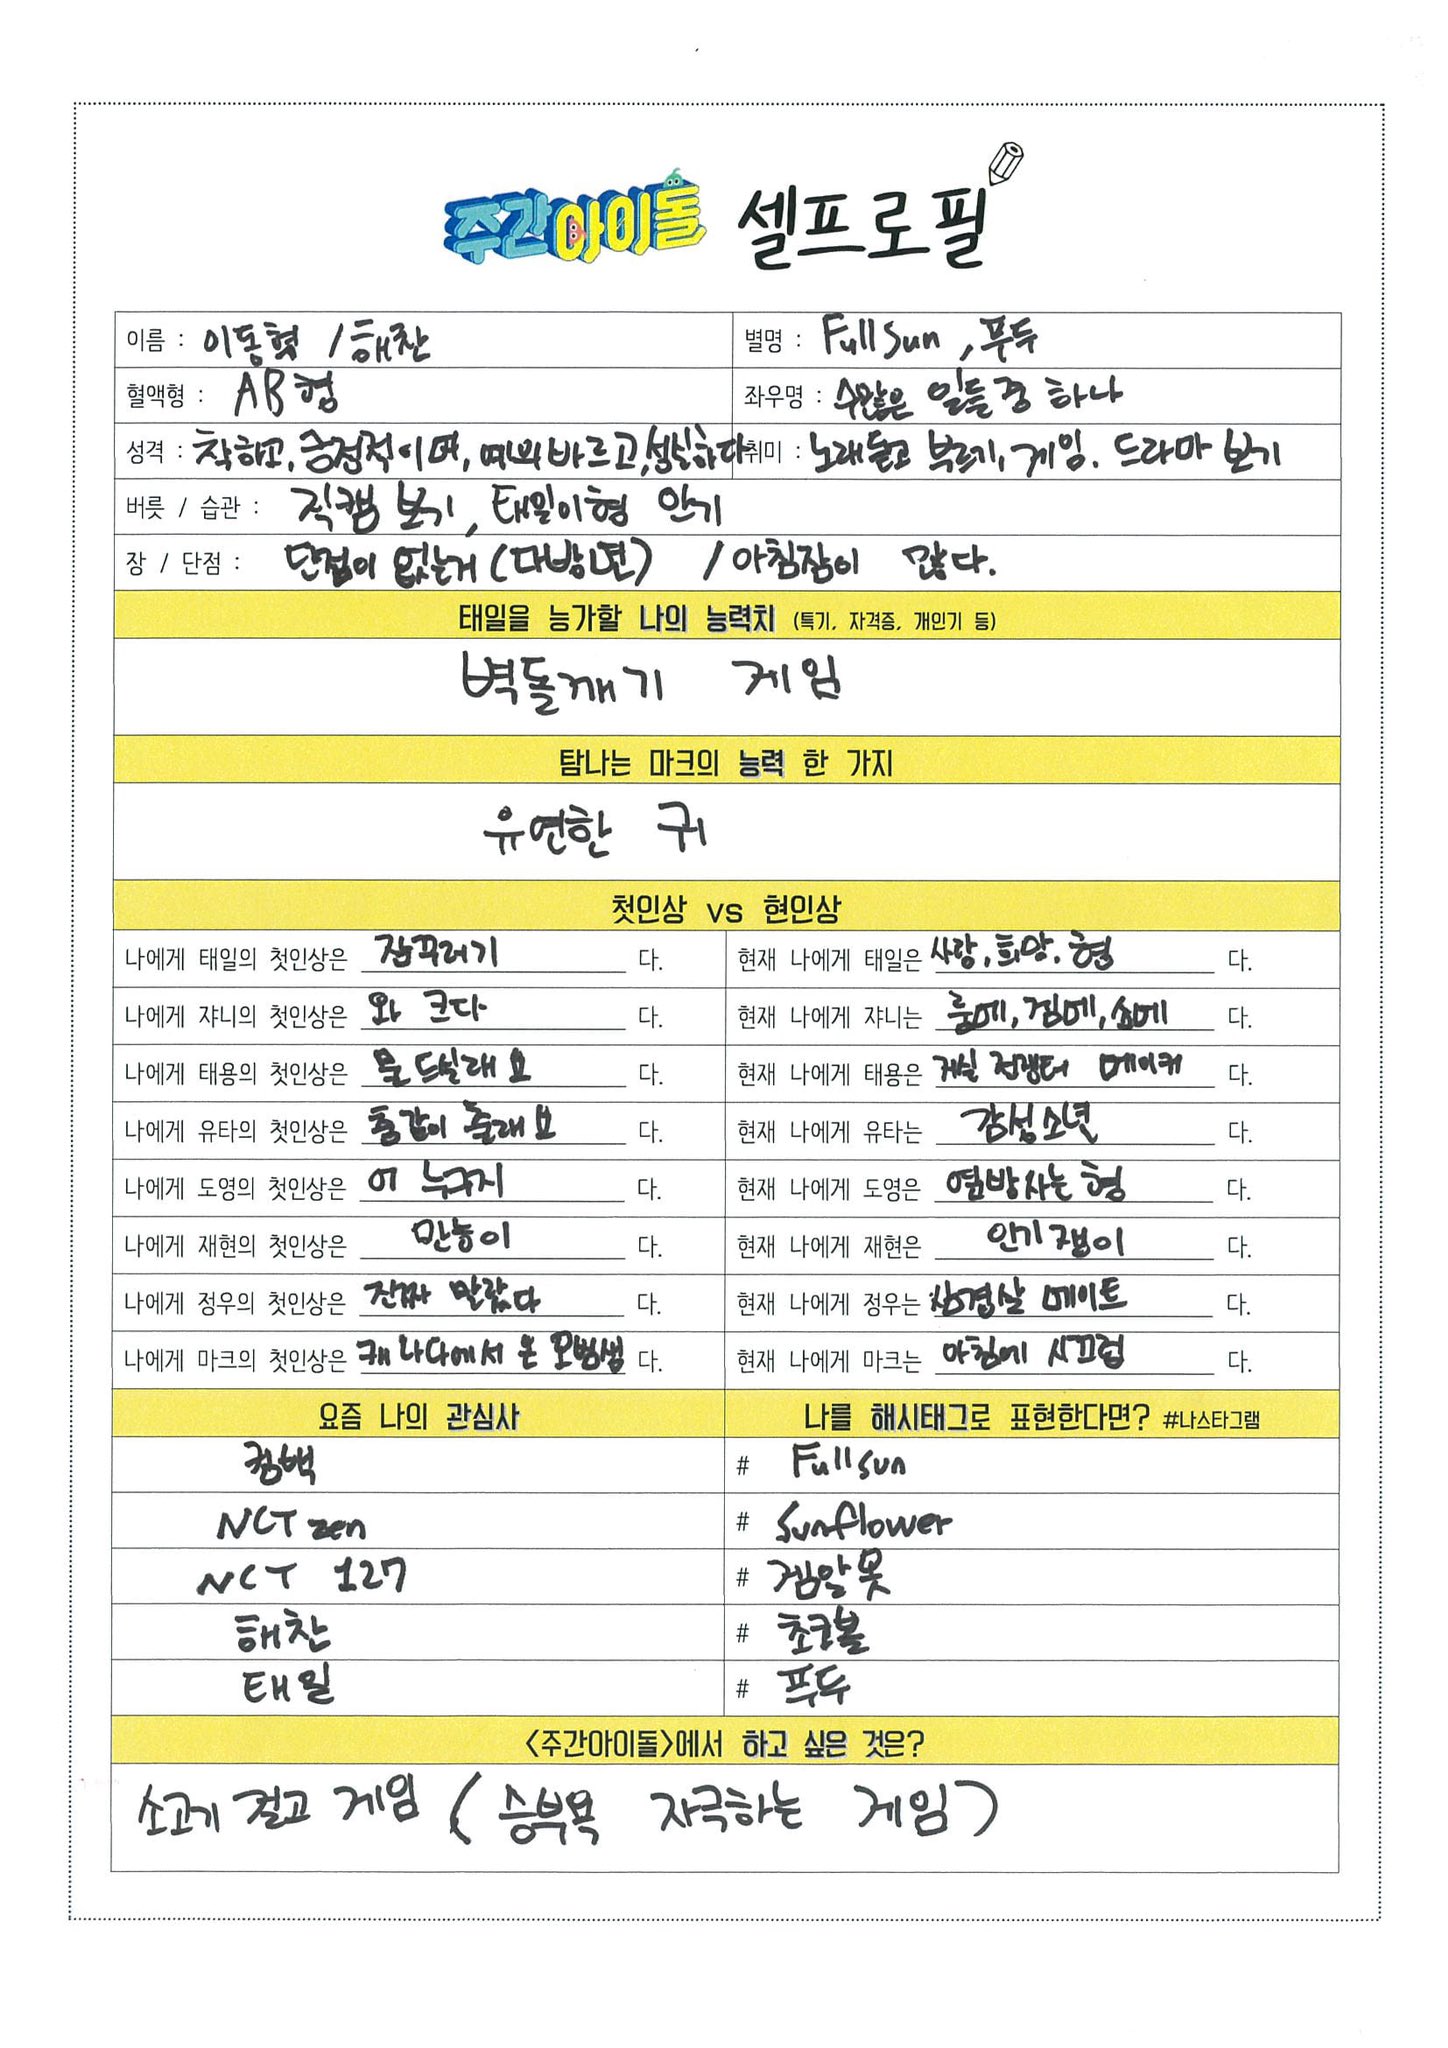 주간아이돌 셀프로필
이름 : 이동혁 / 해찬
별명 : Full Sun, 푸두
혈액형 : AB형
좌우명 : 수많은 일들 중 하나
성격 : 착하고, 긍정적이며, 예의바르고, 성실하다
취미 : 노래듣고 부르기, 게임, 드라마 보기
버릇 / 습관 : 직캠 보기, 태일이형 안기
장 / 단점 : 단점이 없는거 (다방면) / 아침잠이 많다.
태일을 능가할 나의 능력치 (특기, 자격증, 개인기 등)
벽돌깨기 게임
탐나는 마크의 능력 한 가지
유연한 귀
첫인상 vs 현인상
나에게 태일의 첫인상은 잠꾸러기 다.
현재 나에게 태일은 사랑, 희망, 형 다.
나에게 쟈니의 첫인상은 와 크다 다.
현재 나에게 쟈니는 룸메, 겜메, 쇼메 다.
나에게 태용의 첫인상은 물 드실래요 다.
현재 나에게 태용은 거실 전쟁터 메이커 다.
나에게 유타의 첫인상은 춤 같이 출래요 다.
현재 나에게 유타는 감성소년 다.
나에게 도영의 첫인상은 어 누구지 다.
현재 나에게 도영은 옆방사는 형 다.
나에게 재현의 첫인상은 만능이 다.
현재 나에게 재현은 인기쟁이 다.
나에게 정우의 첫인상은 진짜 말랐다 다.
현재 나에게 정우는 삼겹살 메이트 다.
나에게 마크의 첫인상은 캐나다에서 온 모범생 다.
현재 나에게 마크는 아침에 시끄럼 다.
요즘 나의 관심사
나를 해시태그로 표현한다면? #나스타그램
컴백
# Fullsun
NCT zen
# Sunflower
NCT 127
# 겜알못
해찬
# 초코볼
태일
# 푸두
<주간아이돌>에서 하고 싶은 것은?
소고기 걸고 게임 ( 승부욕 자극하는 게임)